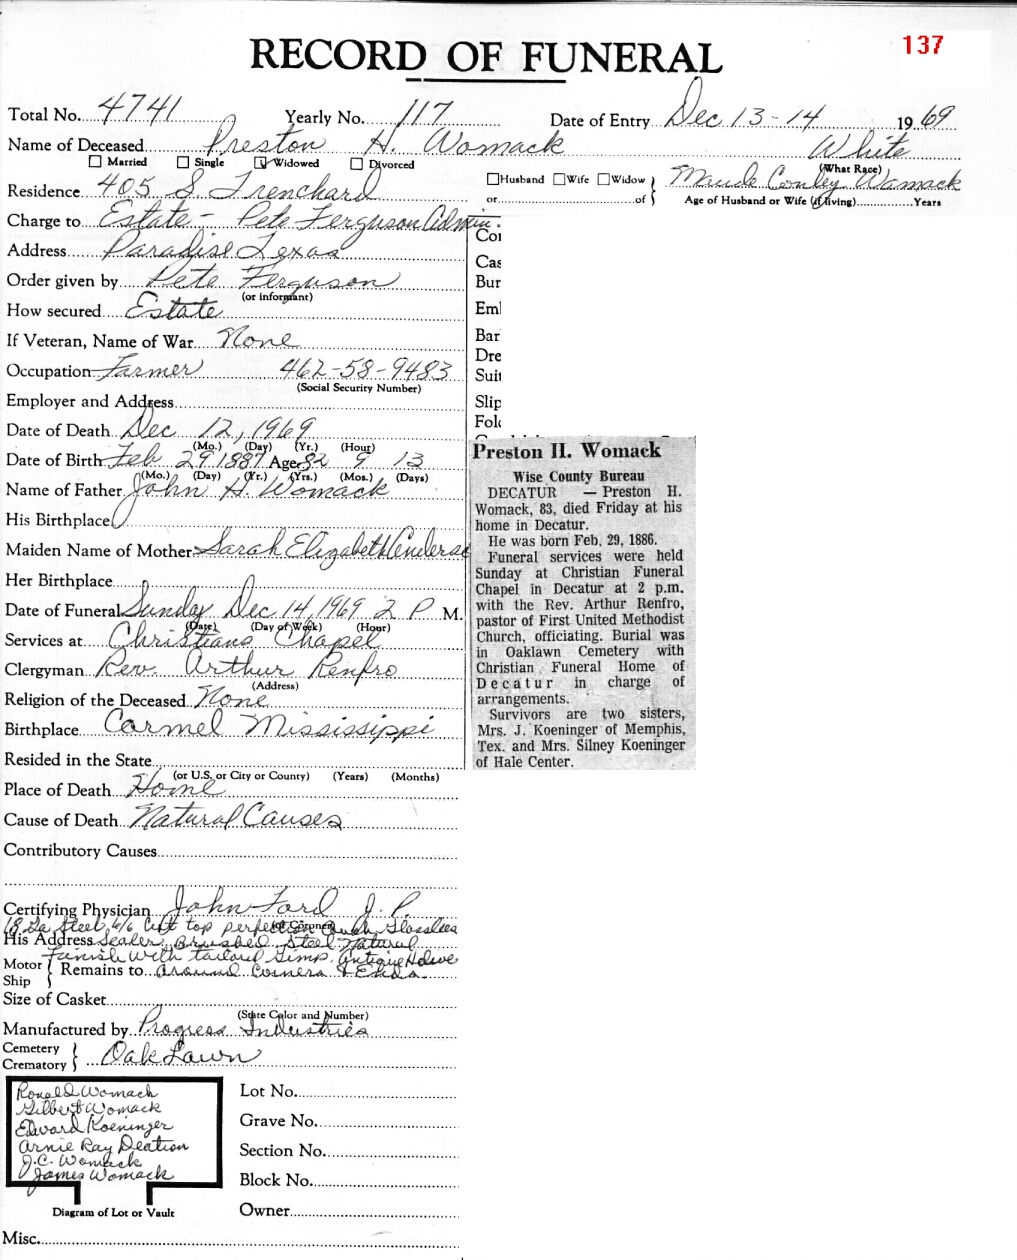 137
RECORD OF FUNERAL
Total No. 4741 Yearly No. 117 Date of Entry Dec 13-14 1969
Name of Deceased Preston H. Womack White
Married Single Widowed Divorced (What Race)
Residence 405 S. Trenchard Husband Wife Widow Maude Conley Womack
or of Age of Husband or Wife (if living) Years
Charge to Estate - Pete Ferguson Admin.
Address Paradise Texas
Order given by Pete Ferguson
(or informant)
How secured Estate
If Veteran, Name of War None
Occupation Farmer 462-58-9483
(Social Security Number)
Employer and Address
Date of Death Dec 12, 1969
(Mo.) (Day) (Yr.) (Hour)
Date of Birth Feb 29 1887 Age 82 9 13
(Mo.) (Day) (Yr.) (Yrs.) (Mos.) (Days)
Name of Father John H. Womack
His Birthplace
Maiden Name of Mother Sarah Elizabeth
Her Birthplace
Date of Funeral Sunday Dec 14, 1969 2 P M.
(Date) (Day of Week) (Hour)
Services at Christians Chapel
Clergyman Rev. Arthur Renfro
(Address)
Religion of the Deceased None
Birthplace Carmel Mississippi
Resided in the State
(or U.S. or City or County) (Years) (Months)
Place of Death Home
Cause of Death Natural Causes
Contributory Causes
Certifying Physician John Ford J.P.
(or Coroner)
18 Ga Steel 6/6 Cut top
His Address Sealer Brushed Steel Natural
Finish with tailored
Motor Ship Remains to Around Corners & Ends.
Size of Casket
(State Color and Number)
Manufactured by Progress Industries
Cemetery Crematory Oak Lawn
Ronald Womack
Gilbert Womack
Edward Koeninger
Arnie Ray Deation
J.C. Womack
James Womack
Diagram of Lot or Vault
Lot No.
Grave No.
Section No.
Block No.
Owner
Misc.
Cas
Bur
Eml
Bar
Dre
Suit
Slip
Preston H. Womack
Wise County Bureau
DECATUR — Preston H.
Womack, 83, died Friday at his
home in Decatur.
He was born Feb. 29, 1886.
Funeral services were held
Sunday at Christian Funeral
Chapel in Decatur at 2 p.m.
with the Rev. Arthur Renfro,
pastor of First United Methodist
Church, officiating. Burial was
in Oaklawn Cemetery with
Christian Funeral Home of
Decatur in charge of
arrangements.
Survivors are two sisters,
Mrs. J. Koeninger of Memphis,
Tex. and Mrs. Silney Koeninger
of Hale Center.